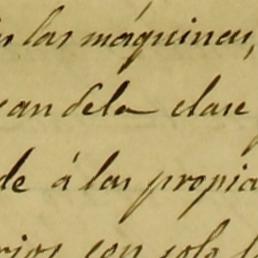 las máquinas,
ean dela clase
de á las propia
rios con solo